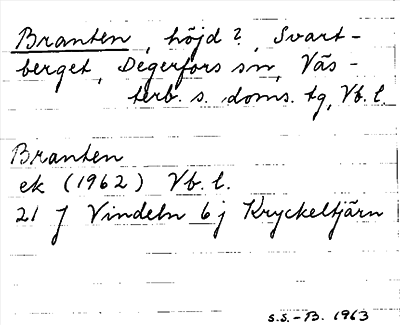 Branten, höjd?, Svart-
berget, Degerfors sn, Väs-
terb. s. doms. tg, Vb. l.
Branten
ek (1962) Vb. l.
21 J Vindeln 6 j Kryckeltjärn
S.S.-B. 1963